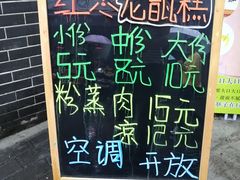 红枣花甑糕
小份 中份 大份
5元 8元 10元
粉蒸肉 15元
凉 12元
空调 开放